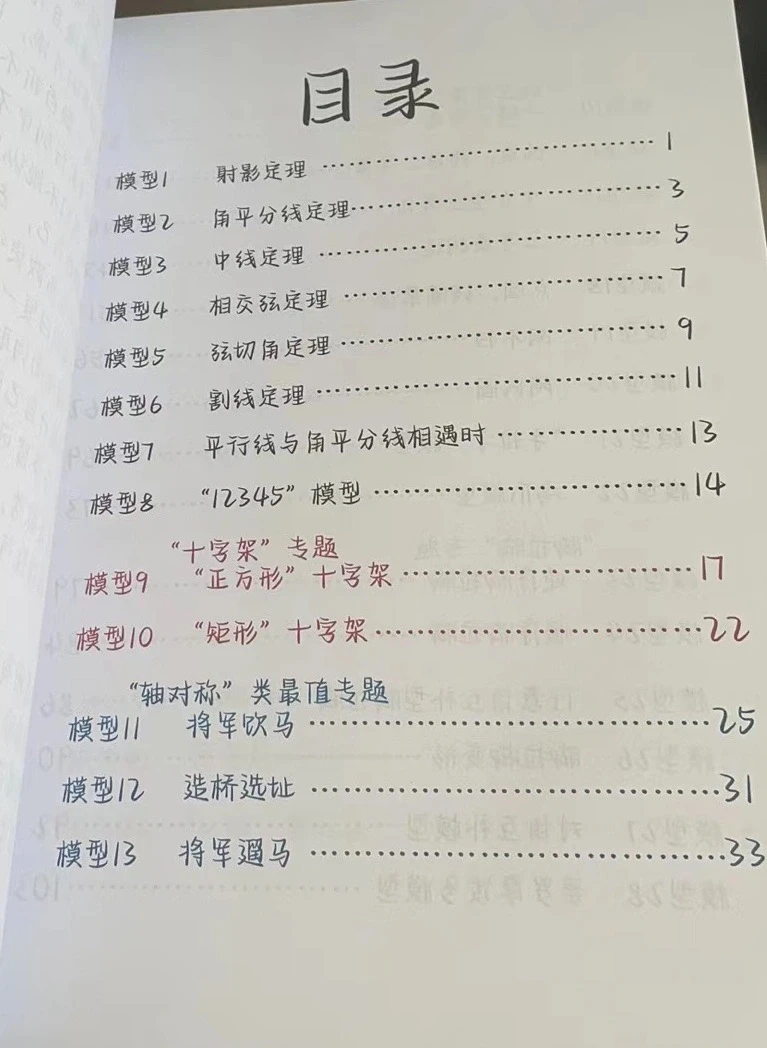 目录
模型1 射影定理 …………………… 1
模型2 角平分线定理 …………………… 3
模型3 中线定理 …………………… 5
模型4 相交弦定理 …………………… 7
模型5 弦切角定理 …………………… 9
模型6 割线定理 …………………… 11
模型7 平行线与角平分线相遇时 …………… 13
模型8 “12345”模型 …………………… 14
“十字架”专题
模型9 “正方形”十字架 …………………… 17
模型10 “矩形”十字架 …………………… 22
“轴对称”类最值专题
模型11 将军饮马 …………………… 25
模型12 造桥选址 …………………… 31
模型13 将军遛马 …………………… 33